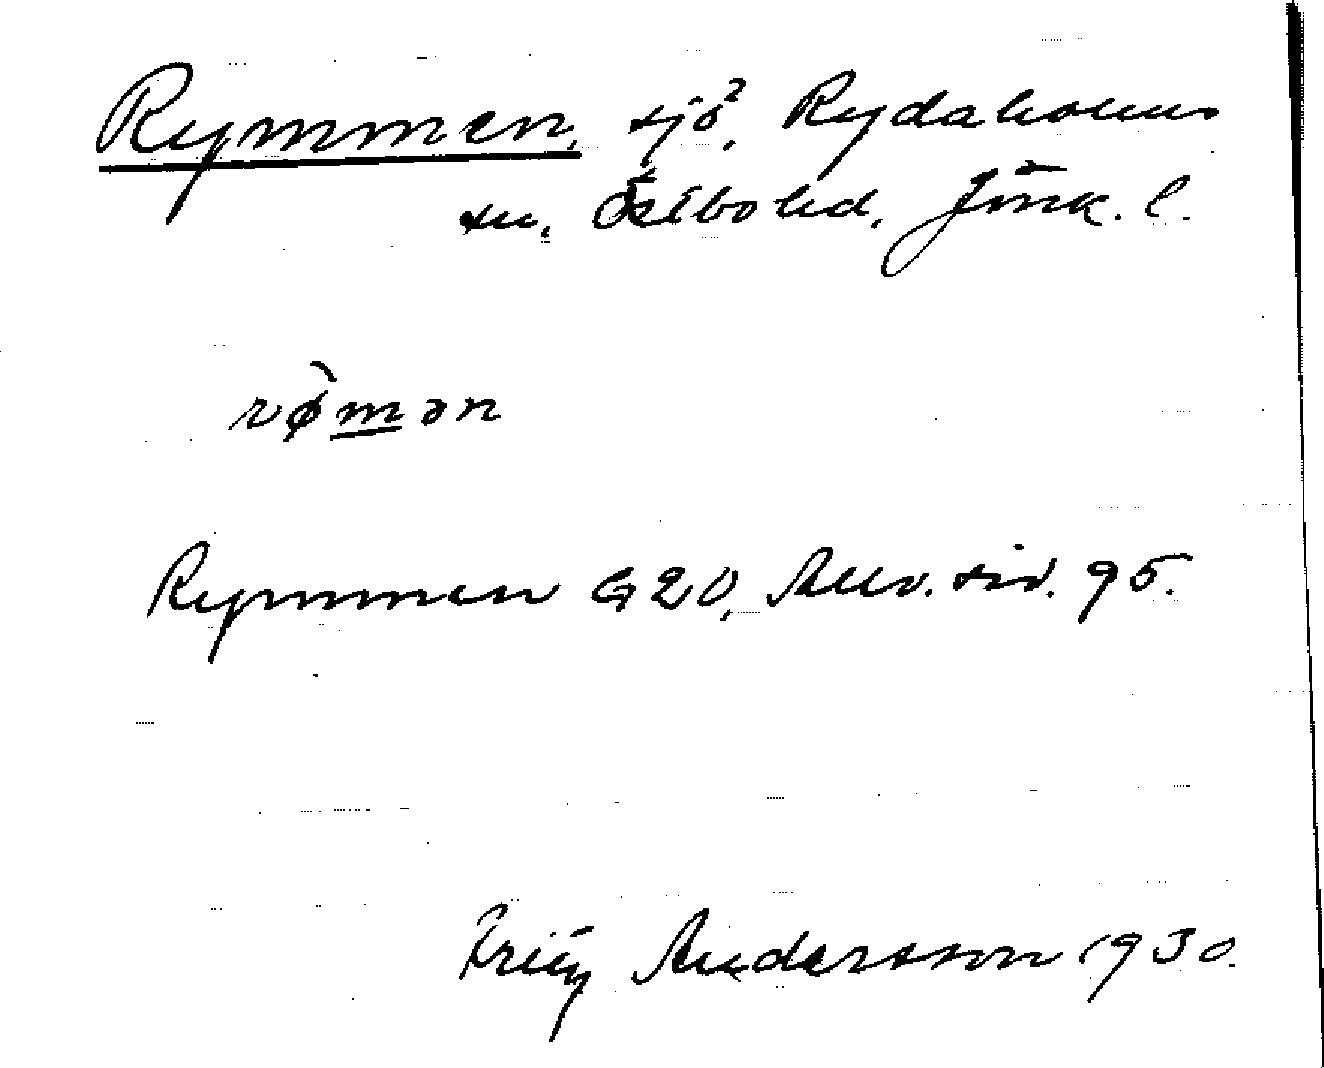 Rymmen, sjö², Rydaholms
sn, Östbo hd, Jönk. l.
rø̀mən
Rymmen G20, Allv. sid. 95.
Fritz Andersson 1930.